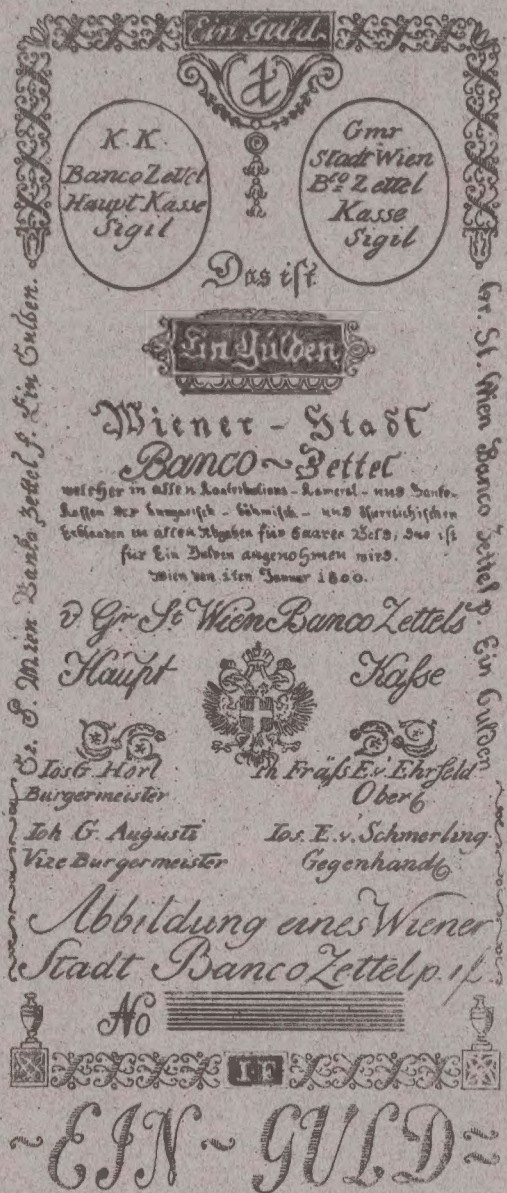 Ein Guld.
1
K. K.
Banco Zettel
Haupt Kasse
Sigil
Gmr
Stadt Wien
Bco Zettel
Kasse
Sigil
Das ist
Ein Gulden
Wiener - Stadt
Banco ~ Zettel
welcher in allen Kontributions - Kameral - und Banko-
Kassen der hungarisch - böhmisch - und österreichischen
Erblanden zu allen Abgaben für baares Geld, das ist
für Ein Gulden angenohmen wird.
Wien den 1ten Jenner 1800.
v Gr St Wien Banco Zettels
Haupt Kasse
Ios G Horl
Burgermeister
E.v. Ehrfeld
Ober
Ioh G. Augusti
Vize Burgermeister
Ios. E. v. Schmerling
Gegenhand
Gr. S. Wien Banko Zettel f. Ein Gulden.
Gr. St. Wien Banco Zettel p. Ein Gulden
Abbildung eines Wiener
Stadt Banco Zettel p. 1f
No
1 F
~ EIN ~ GULD ~